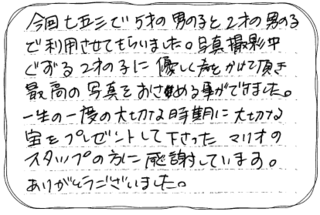 今回七五三で5才の男の子と2才の男の子
で利用させてもらいました。写真撮影中
ぐずる2才の子に優しく声をかけて頂き
最高の写真をおさめる事ができました。
一生の一度の大切な時期に大切な
宝をプレゼントして下さったマリオの
スタップの方に感謝しています。
ありがとうございました。